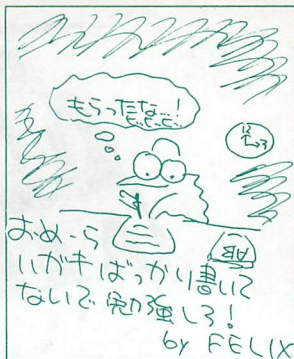 もらったな…!
ヒヒヒヒ
12
3
おめーら
ハガキばっかり書いて
ないで勉強しろ!
by FELIX